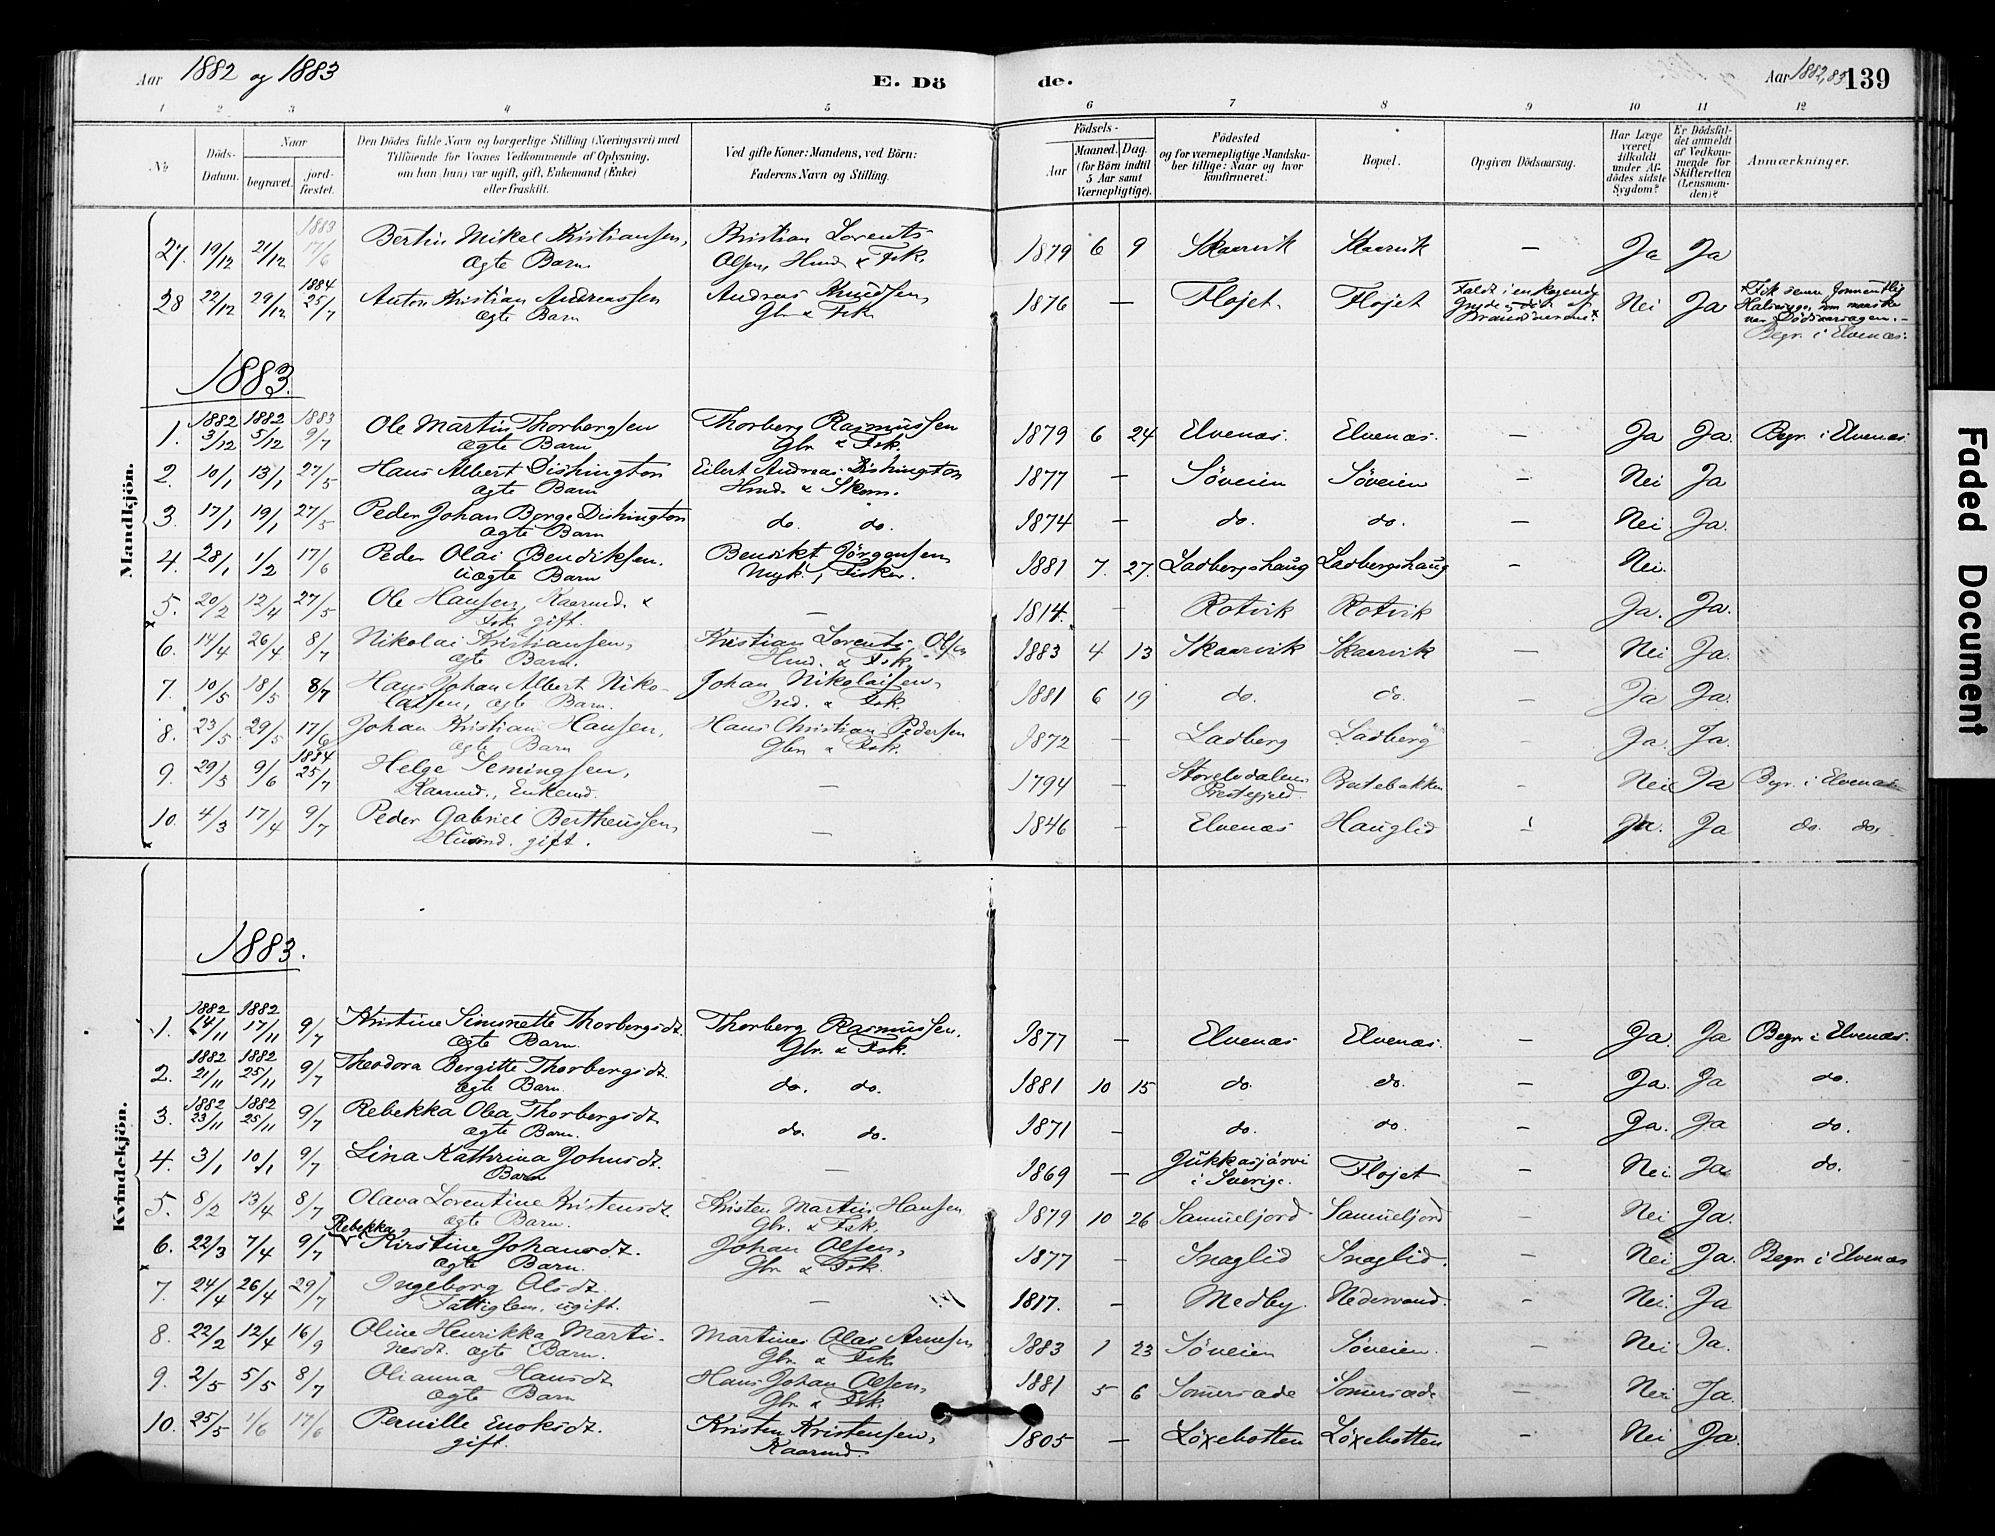 Aar 1882 og 1883
E. Dö
de.
Aar 1882, 83
139
1 2 3 4 5 6 7 8 9 10 11 12
No.
Döds-Datum.
Naar
begravet.
jord-fæstet.
Den Dödes fulde Navn og borgerlige Stilling (Næringsvei) med
Tilföiende for Voxnes Vedkommende af Oplysning,
om han (hun) var ugift, gift, Enkemand (Enke)
eller fraskilt.
Ved gifte Koner: Mandens, ved Börn:
Faderens Navn og Stilling.
Födsels-
Aar
Maaned. Dag.
(for Börn indtil
5 Aar samt
Værnepligtige).
Födested
og for værnepligtige Mandska-
ber tillige: Naar og hvor
konfirmeret.
Bopæl.
Opgiven Dödsaarsag.
Har Læge
været
tilkaldt
under Af-
dödes sidste
Sygdom?
Er Dödsfal-
det anmeldt
af Vedkom-
mende for
Skifteretten
(Lensman-
den)?
Anmærkninger.
Mandkjön.
27. 19/12 21/12 1883 17/6 Bertin Mikal Kristiansen, Kristian Lorents 1879 6 9 Skaarvik Skaarvik — Ja Ja
ægte Barn Olsen, Husm. & Fsk.
28 22/12 29/12 1884 25/7 Anton Kristian Andreassen Andreas Knudsen, 1876 — Fløjet. Fløjet Faldt i en kogende Gryde, død af Brandsaarene.* Nei Ja
ægte Barn Gbr. & Fsk.
Begr. i Elvenæs.
1883.
1. 1882 3/12 1882 5/12 1883 9/7 Ole Martin Thorbergsen Thorberg Rasmussen 1879 6 24 Elvenæs. Elvenæs. — Ja Ja. Begr. i Elvenæs.
ægte Barn Gbr. & Fsk.
2. 10/1 13/1 27/5 Hans Albert Dishington Eilert Andreas Dishington 1877 — Søveien Søveien — Nei Ja
ægte Barn Husm. & Skom.
3. 17/1 19/1 27/5 Peder Johan Borge Dishington do. do. 1874 — do. do. — Nei. Ja.
ægte Barn
4. 28/1 1/2 17/6 Peder Olai Bendiksen. Bendikt Jørgensen 1881 7. 27. Ladbergshaug Ladbergshaug — Nei.
uægte Barn Ungk., Fisker.
5. 20/2 12/4 27/5 Ole Hansen, Kaarmd. & — 1814. — Rotvik Rotvik Ja. Ja.
Fsk. gift.
6. 14/4 26/4 8/7 Nikolai Kristiansen, Kristian Lorents Olsen 1883 4 13 Skaarvik Skaarvik — Nei Ja.
ægte Barn. Husm. & Fsk.
7. 10/5 18/5 8/7 Hans Johan Albert Niko- Johan Nikolaisen, 1881 6 19 do. do. — Ja Ja.
laisen, ægte Barn. Ind. & Fsk.
8. 23/5 29/5 17/6 Johan Kristian Hansen, Hans Christian Pedersen 1872 — Ladberg Ladberg — Ja. Ja.
ægte Barn Gbr. & Fsk.
9. 29/5 9/6 1884 25/7 Helge Semingsen, — 1794 — Storelvdalens Prestegjeld. Bratebakken — Nei Ja Begr. i Elvenæs
Kaarmd., Enkemd.
10. 4/3 17/4 9/7 Peder Gabriel Bertheussen, — 1846 — Elvenæs Hauglid Ja. Ja do. do.
Husmd. gift.
Kvindekjön.
1883.
1. 1882 14/11 1882 17/11 9/7 Kristine Simonette Thorbergsdt. Thorberg Rasmussen. 1877 — Elvenæs Elvenæs. — Ja Ja Begr. i Elvenæs.
ægte Barn. Gbr. & Fsk.
2. 1882 21/11 1882 25/11 9/7 Theodora Bergitte Thorbergsdt. do. do. 1881 10 15 do. do. — Ja. Ja do.
ægte Barn.
3. 1882 23/11 1882 25/11 9/7 Rebekka Olea Thorbergsdt do. do. 1871 — do. do. — Ja. Ja do.
ægte Barn.
4. 3/1 10/1 9/7 Lina Kathrina Johnsdt. — 1869 — Jukkasjärvi i Sverige. Fløjet — Nei. Ja do.
Barn
5. 8/2 13/4 8/7 Olava Lorentine Kristensdt. Kristen Martin Hansen 1879 10 26 Samueljord Samueljord — Nei Ja.
ægte Barn. Gbr. & Fsk.
6. 22/3 7/4 9/7 Rebekka Kirstine Johansdt. Johan Olsen, 1877 — Snaglid Snaglid. — Nei Ja. Begr. i Elvenæs
ægte Barn. Gbr. & Fsk.
7. 24/4 26/4 29/7 Ingeborg Olsdt. — 1817. — Medby. Nedervand. — Nei. Ja
Fattiglem, ugift.
8. 22/2 12/4 16/9 Oline Henrikka Marti- Martines Olas Arnesen 1883 1 23 Søveien Søveien. — Nei Ja.
nesdt. ægte Barn. Gbr. & Fsk.
9. 2/5 5/5 8/7 Olianna Hansdt Hans Johan Olsen, 1881 5 6 Somersæde Somersæde — Nei Ja.
ægte Barn Gbr. & Fsk.
10. 25/5 1/6 17/6 Pernille Enoksdt. Kristen Kristensen, 1805 — Løxebotten Løxebotten — Nei Ja.
gift. Kaarmd.
Faded Document